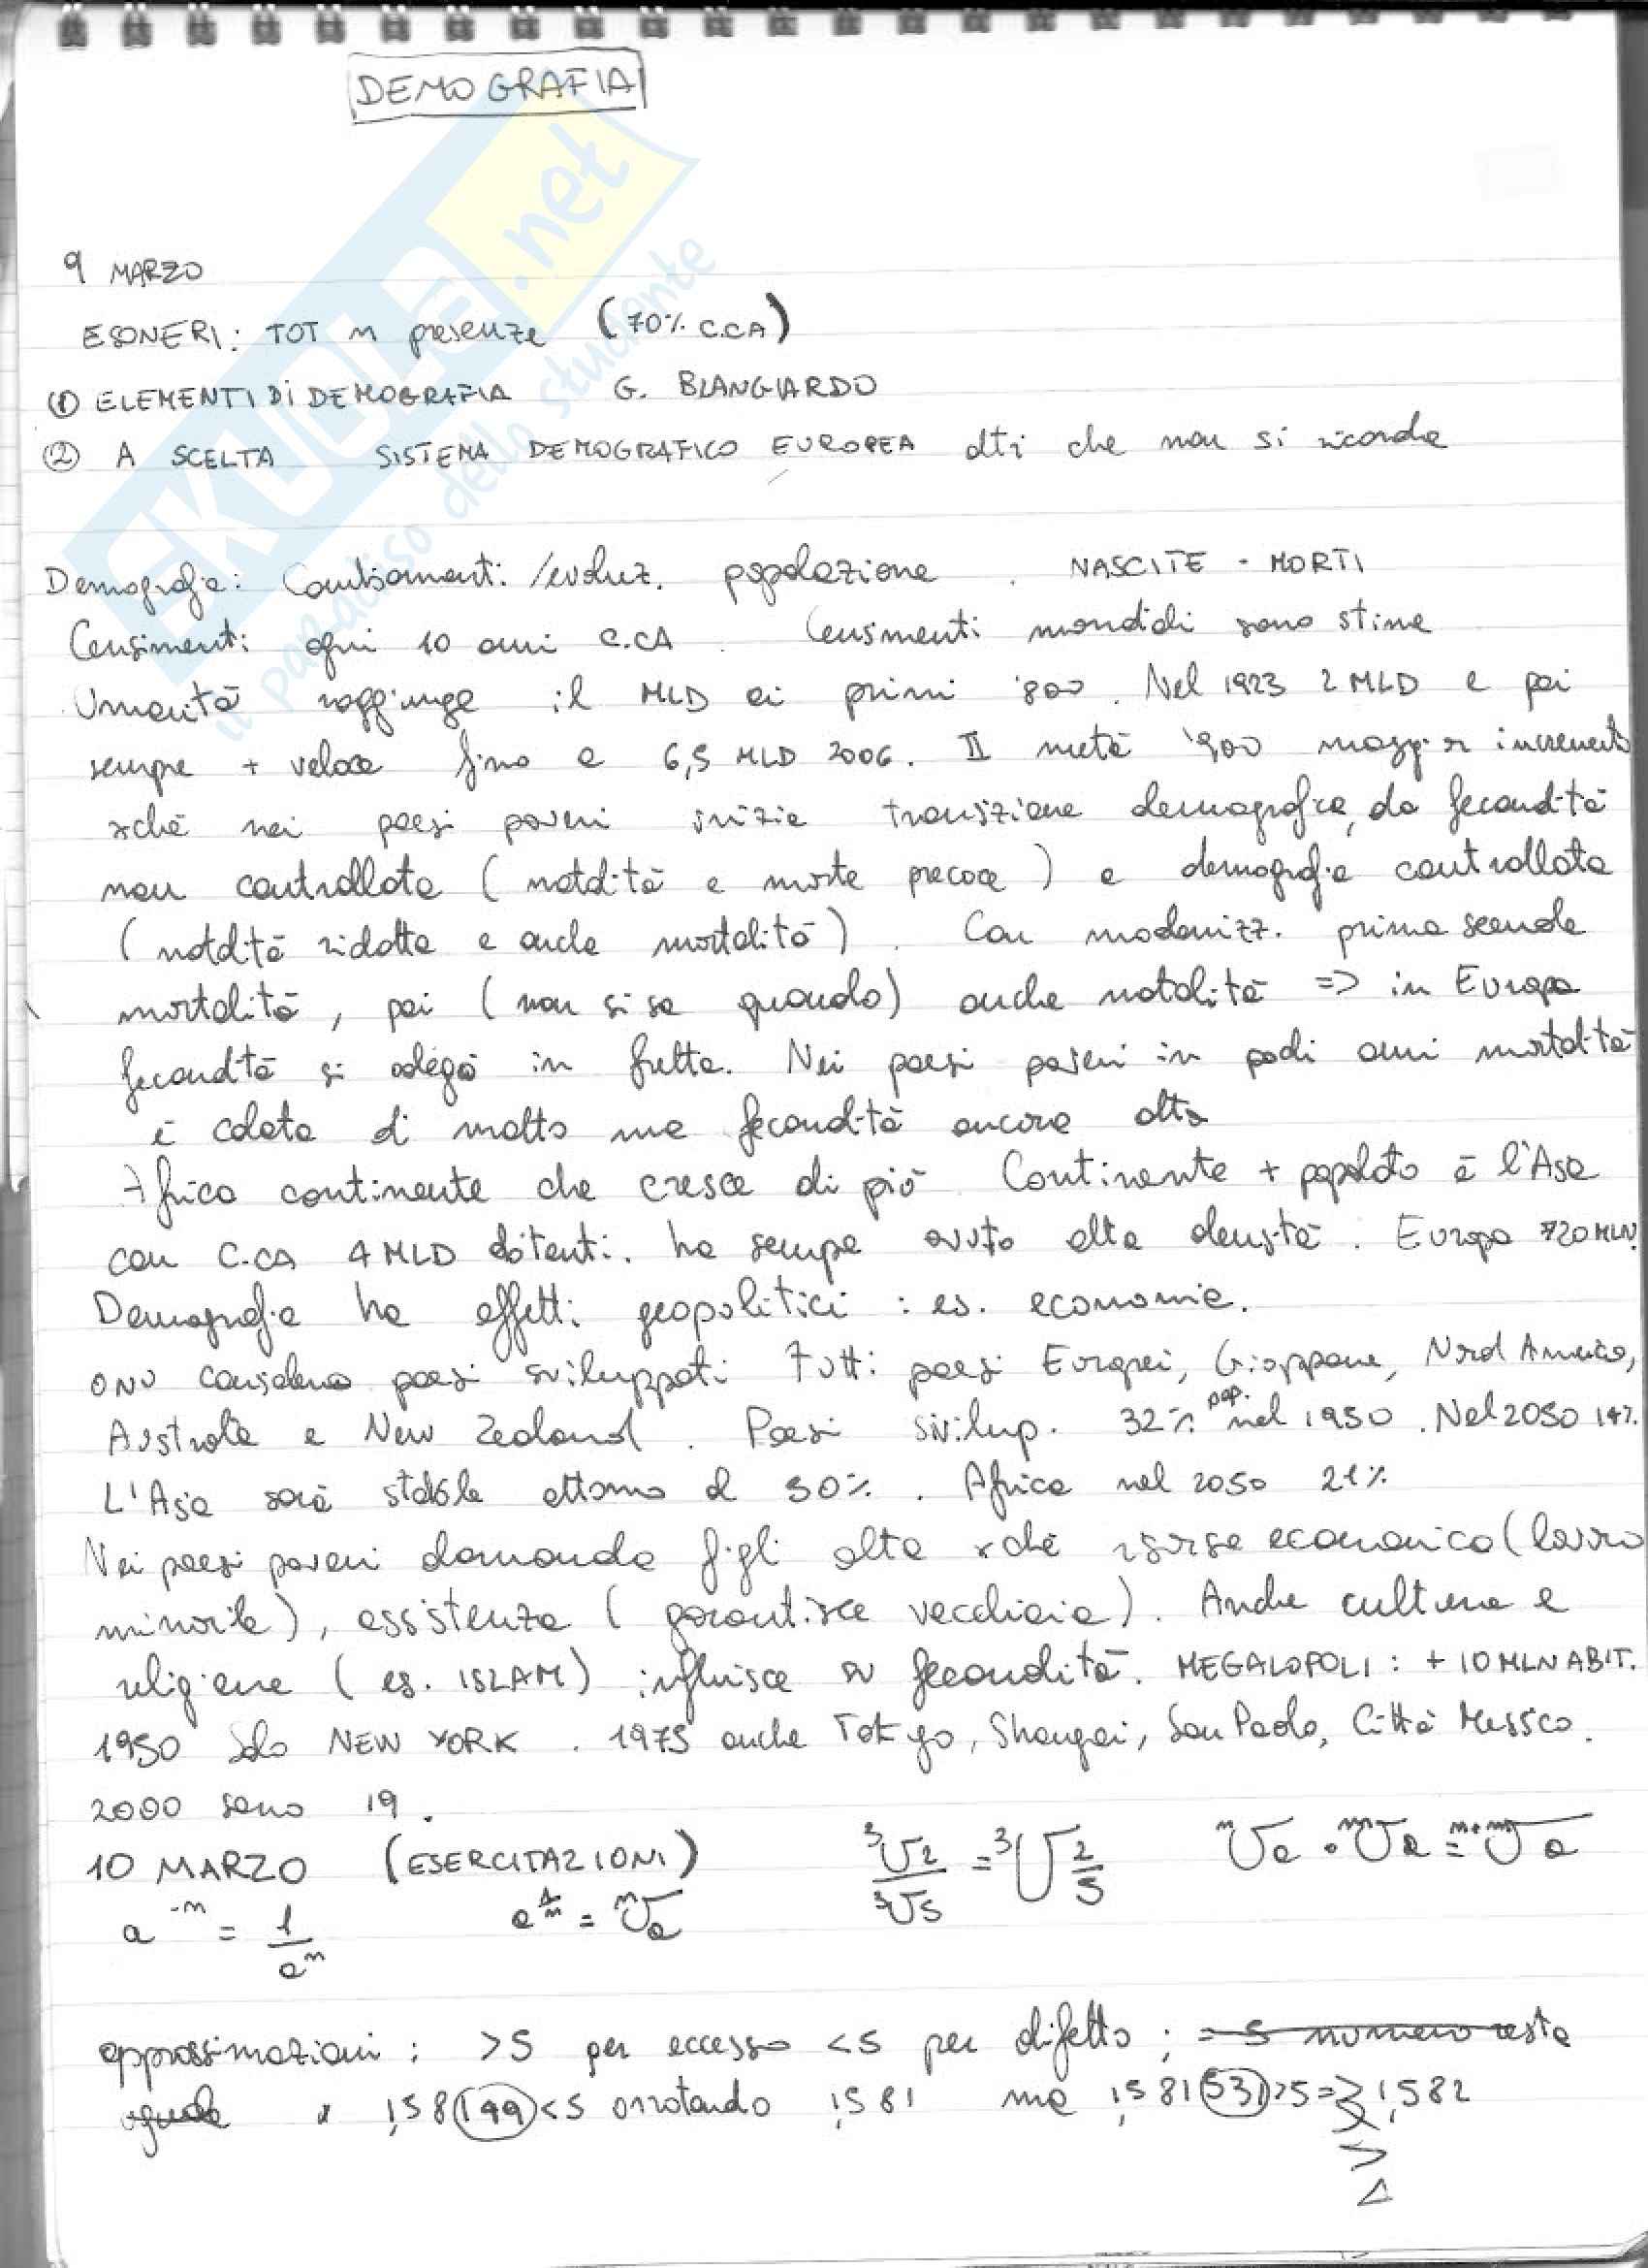 DEMOGRAFIA
SKUOLA.net
il paradiso dello studente
9 MARZO
ESONERI: TOT n presenze (70% C.CA)
① ELEMENTI DI DEMOGRAFIA G. BLANGIARDO
② A SCELTA SISTEMA DEMOGRAFICO EUROPEA altri che non si ricorda
Demografia: Cambiamenti /evoluz. popolazione . NASCITE - MORTI
Censimenti ogni 10 anni C.CA . Censimenti mondiali sono stime
Umanità raggiunge il MLD ai primi '800. Nel 1923 2 MLD e poi
sempre + veloce fino a 6,5 MLD 2006. II metà '900 maggior incremento
xché nei paesi poveri inizia transizione demografica, da fecondità
non controllata (natalità e morte precoce) a demografia controllata
(natalità ridotta e anche mortalità). Con modernizz. prima scende
mortalità, poi (non si sa quando) anche natalità => in Europa
fecondità si adeguò in fretta. Nei paesi poveri in pochi anni mortalità
è calata di molto ma fecondità ancora alta
Africa continente che cresce di più. Continente + popolato è l'Asia
con C.CA 4 MLD abitanti. ha sempre avuto alta densità. Europa 720 MLN.
Demografia ha effetti geopolitici : es. economia.
ONU considera paesi sviluppati tutti paesi Europei, Giappone, Nord America,
Australia e New Zealand. Paesi svilup. 32% pop. nel 1950. Nel 2050 14%.
L'Asia sarà stabile attorno al 50%. Africa nel 2050 21%
Nei paesi poveri domanda figli alta xché risorsa economica (lavoro
minorile), assistenza (garantisce vecchiaia). Anche cultura e
religione (es. ISLAM) influisce su fecondità. MEGALOPOLI : + 10 MLN ABIT.
1950 solo NEW YORK . 1975 anche Tokyo, Shangai, San Paolo, Città Messico.
2000 sono 19.
10 MARZO (ESERCITAZIONI) ³√2 / ³√5 = ³√(2/5) ⁿ√a • ᵐ√a = ᵐ⁺ⁿ√a
a⁻ⁿ = 1/aⁿ a^(1/n) = ⁿ√a
approssimazioni : >5 per eccesso <5 per difetto ; =5 numero resta
uguale x 1,581(199)<5 arrotondo 1,581 ma 1,581(531)>5 => 1,582